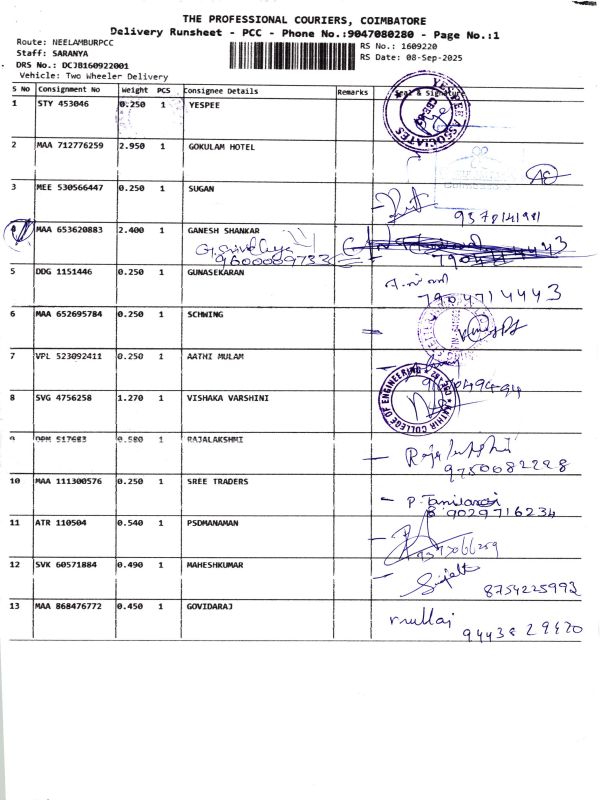 THE PROFESSIONAL COURIERS, COIMBATORE
Delivery Runsheet - PCC - Phone No.:9047080280 - Page No.:1
Route: NEELAMBURPCC
Staff: SARANYA
DRS No.: DCJB160922001
Vehicle: Two Wheeler Delivery
RS No.: 1609220
RS Date: 08-Sep-2025
S No Consignment No Weight PCS Consignee Details Remarks Seal & Signature
1 STY 453046 0.250 1 YESPEE
YESPEE ASSOCIATES
2 MAA 712776259 2.950 1 GOKULAM HOTEL
3 MEE 530566447 0.250 1 SUGAN
4 MAA 653620883 2.400 1 GANESH SHANKAR
9600009733
5 DDG 1151446 0.250 1 GUNASEKARAN
7904714443
6 MAA 652695784 0.250 1 SCHWING
7 VPL 523092411 0.250 1 AATHI MULAM
8 SVG 4756258 1.270 1 VISHAKA VARSHINI
KATHIR COLLEGE OF ENGINEERING
9 DPM 517683 0.580 1 RAJALAKSHMI
9750082228
10 MAA 111300576 0.250 1 SREE TRADERS
9029716234
11 ATR 110504 0.540 1 PSDMANAMAN
12 SVK 60571884 0.490 1 MAHESHKUMAR
8754225993
13 MAA 868476772 0.450 1 GOVIDARAJ
mullai
94438 29420